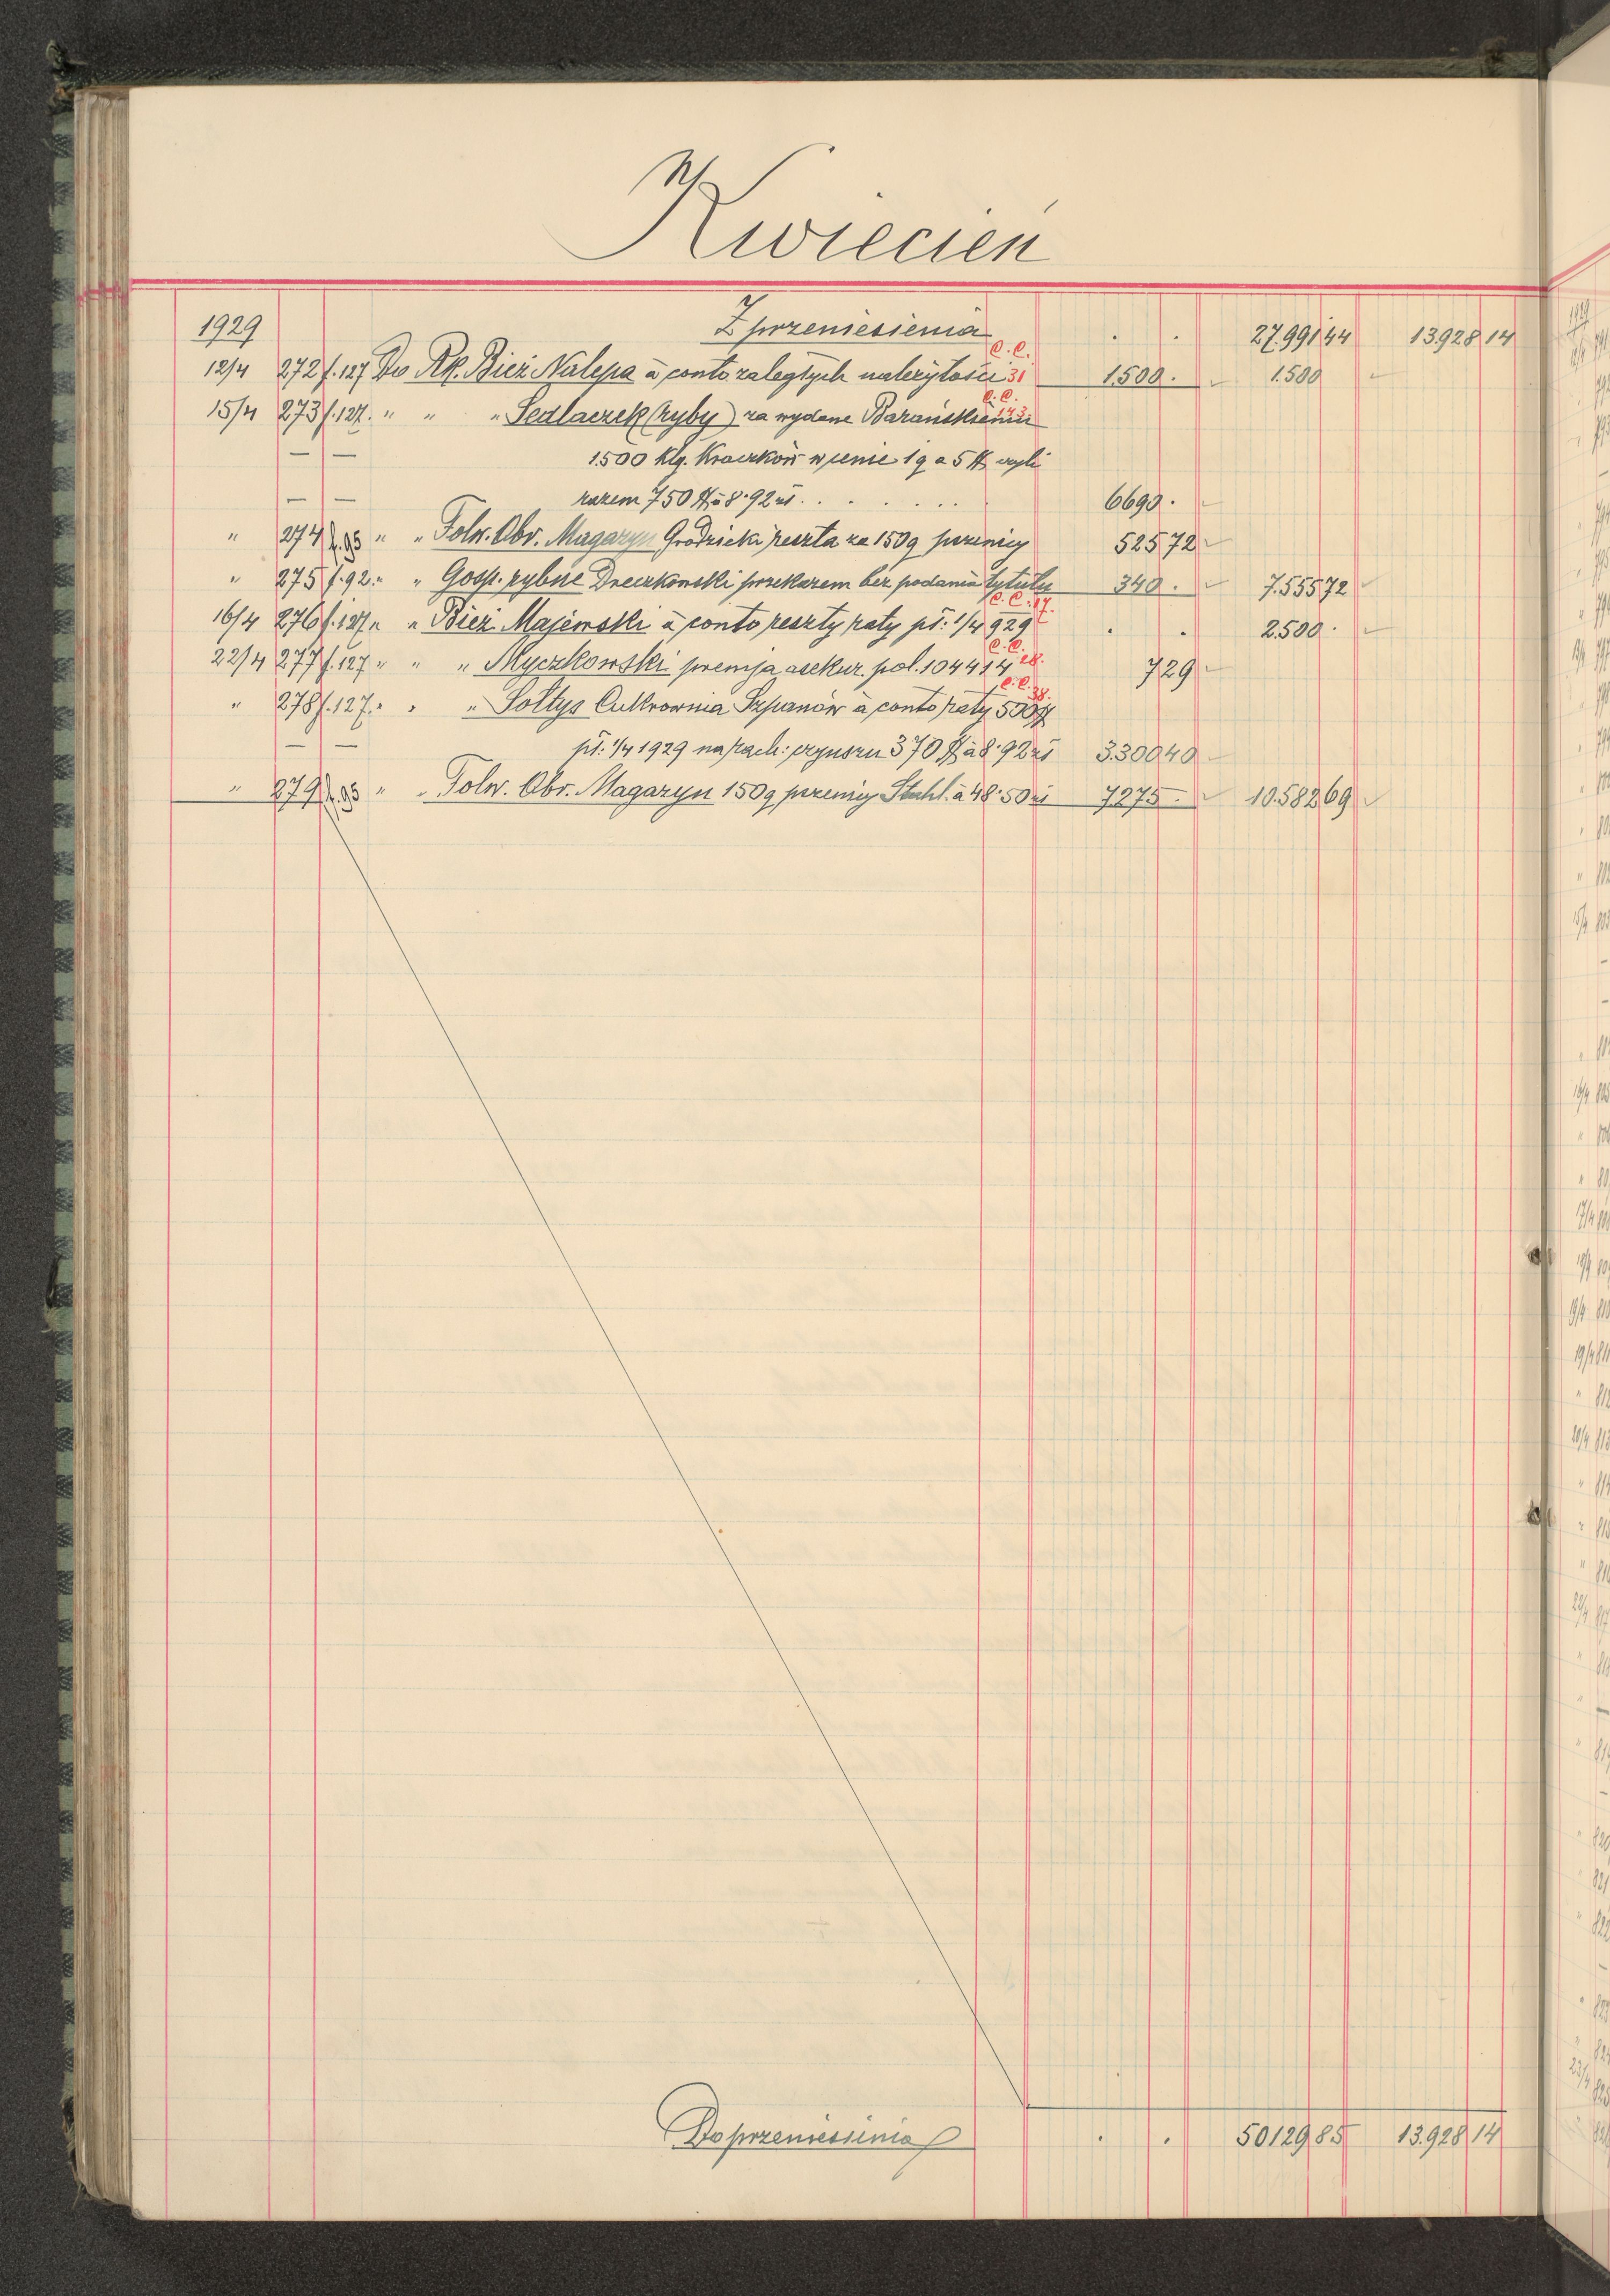 Kwiecień
1929 Z przeniesienia . . 27.991 44 13.928 14
12/4 272 f.127 Do Rk. Bież. Nalepa à conto zaległych należytości C.C. 31 1.500 . 1.500
15/4 273 f.127. " " " Sedlaczek (ryby) za wydane Barańskiemu C.C. 143
— — 1.500 Klg. Kroczków w cenie 1 q a 5 $ czyli
— — razem 750 $ à 8.92 zł. . . . . . 6690 .
" 274 f.95 " " Folw. Obr. Magazyn Grodzicki reszta za 150 q pszenicy 525 72
" 275 f.92. " " Gosp. rybne Dreczkowski przekazem bez podania tytułu 340 . 7.555 72
16/4 276 f.127. " " Bież. Majewski à conto reszty raty pł. 1/4 929 C.C. 17. . . 2.500 .
22/4 277 f.127 " " " Myczkowski premja asekur. pol. 104414 C.C. 28. 7 29
" 278 f.127. " " " Sołtys Cukrownia Szpanów à conto raty 500 $ C.C. 38.
— — pł. 1/4 1929 na rach: czynszu 370 $ à 8.92 zł 3.300 40
" 279 f.95 " " Folw. Obr. Magazyn 150 q pszenicy Stahl. à 48.50 zł 7.275 . 10.582 69
Do przeniesienia . . 50129 85 13.928 14